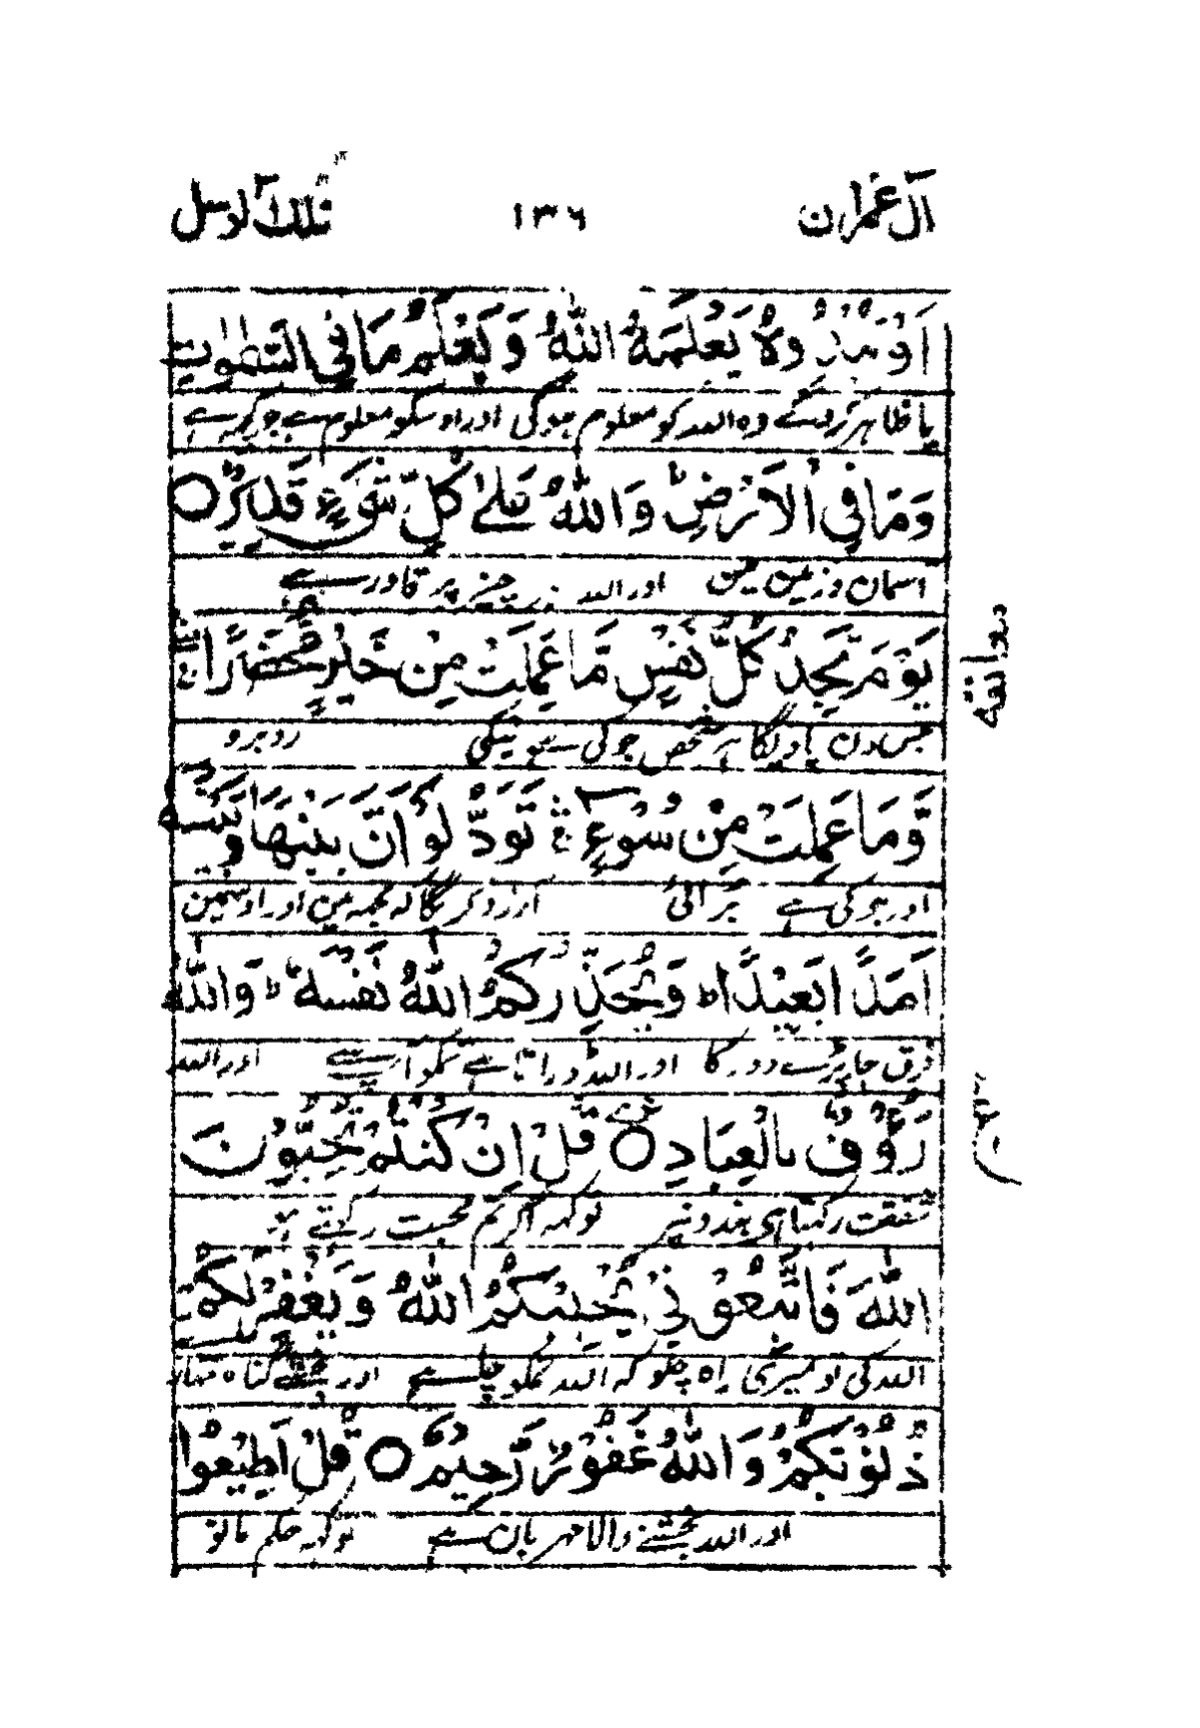 آل عمران ١٣٦ تلك الرسل
اَوْ تُبْدُوْهُ يَعْلَمْهُ اللّٰهُ وَيَعْلَمُ مَا فِي السَّمٰوٰتِ
یا ظاہر کروگے وہ اللہ کو معلوم ہوگی اور اوسکو معلوم ہے جو کچھ ہے
وَمَا فِي الْاَرْضِ ؕ وَاللّٰهُ عَلٰى كُلِّ شَيْءٍ قَدِيْرٌ ○
آسمان و زمین میں اور اللہ ہر چیز پر قادر ہے
يَوْمَ تَجِدُ كُلُّ نَفْسٍ مَّا عَمِلَتْ مِنْ خَيْرٍ مُّحْضَرًا
جس دن پاویگا ہر شخص جو کی ہے نیکی روبرو
وَّمَا عَمِلَتْ مِنْ سُوْٓءٍ ۛ تَوَدُّ لَوْ اَنَّ بَيْنَهَا وَبَيْنَهٗ
اور جو کی ہے برائی آرزو کریگا کہ مجھ میں اور اوسمین
اَمَدًۢا بَعِيْدًا ؕ وَيُحَذِّرُكُمُ اللّٰهُ نَفْسَهٗ ؕ وَاللّٰهُ
فرق جا پڑے دور کا اور اللہ ڈراتا ہے تمکو آپ سے اور اللہ
رَءُوْفٌۢ بِالْعِبَادِ ○ قُلْ اِنْ كُنْتُمْ تُحِبُّوْنَ
شفقت رکھتا ہی بندونپر تو کہہ اگر تم محبت رکھتے ہو
اللّٰهَ فَاتَّبِعُوْنِيْ يُحْبِبْكُمُ اللّٰهُ وَيَغْفِرْ لَكُمْ
اللہ کی تو میری راہ چلو کہ اللہ تمکو چاہے اور بخشے گناہ تمہارے
ذُنُوْبَكُمْ ؕ وَاللّٰهُ غَفُوْرٌ رَّحِيْمٌ ○ قُلْ اَطِيْعُوا
اور اللہ بخشنے والا مہربان ہے تو کہہ حکم مانو